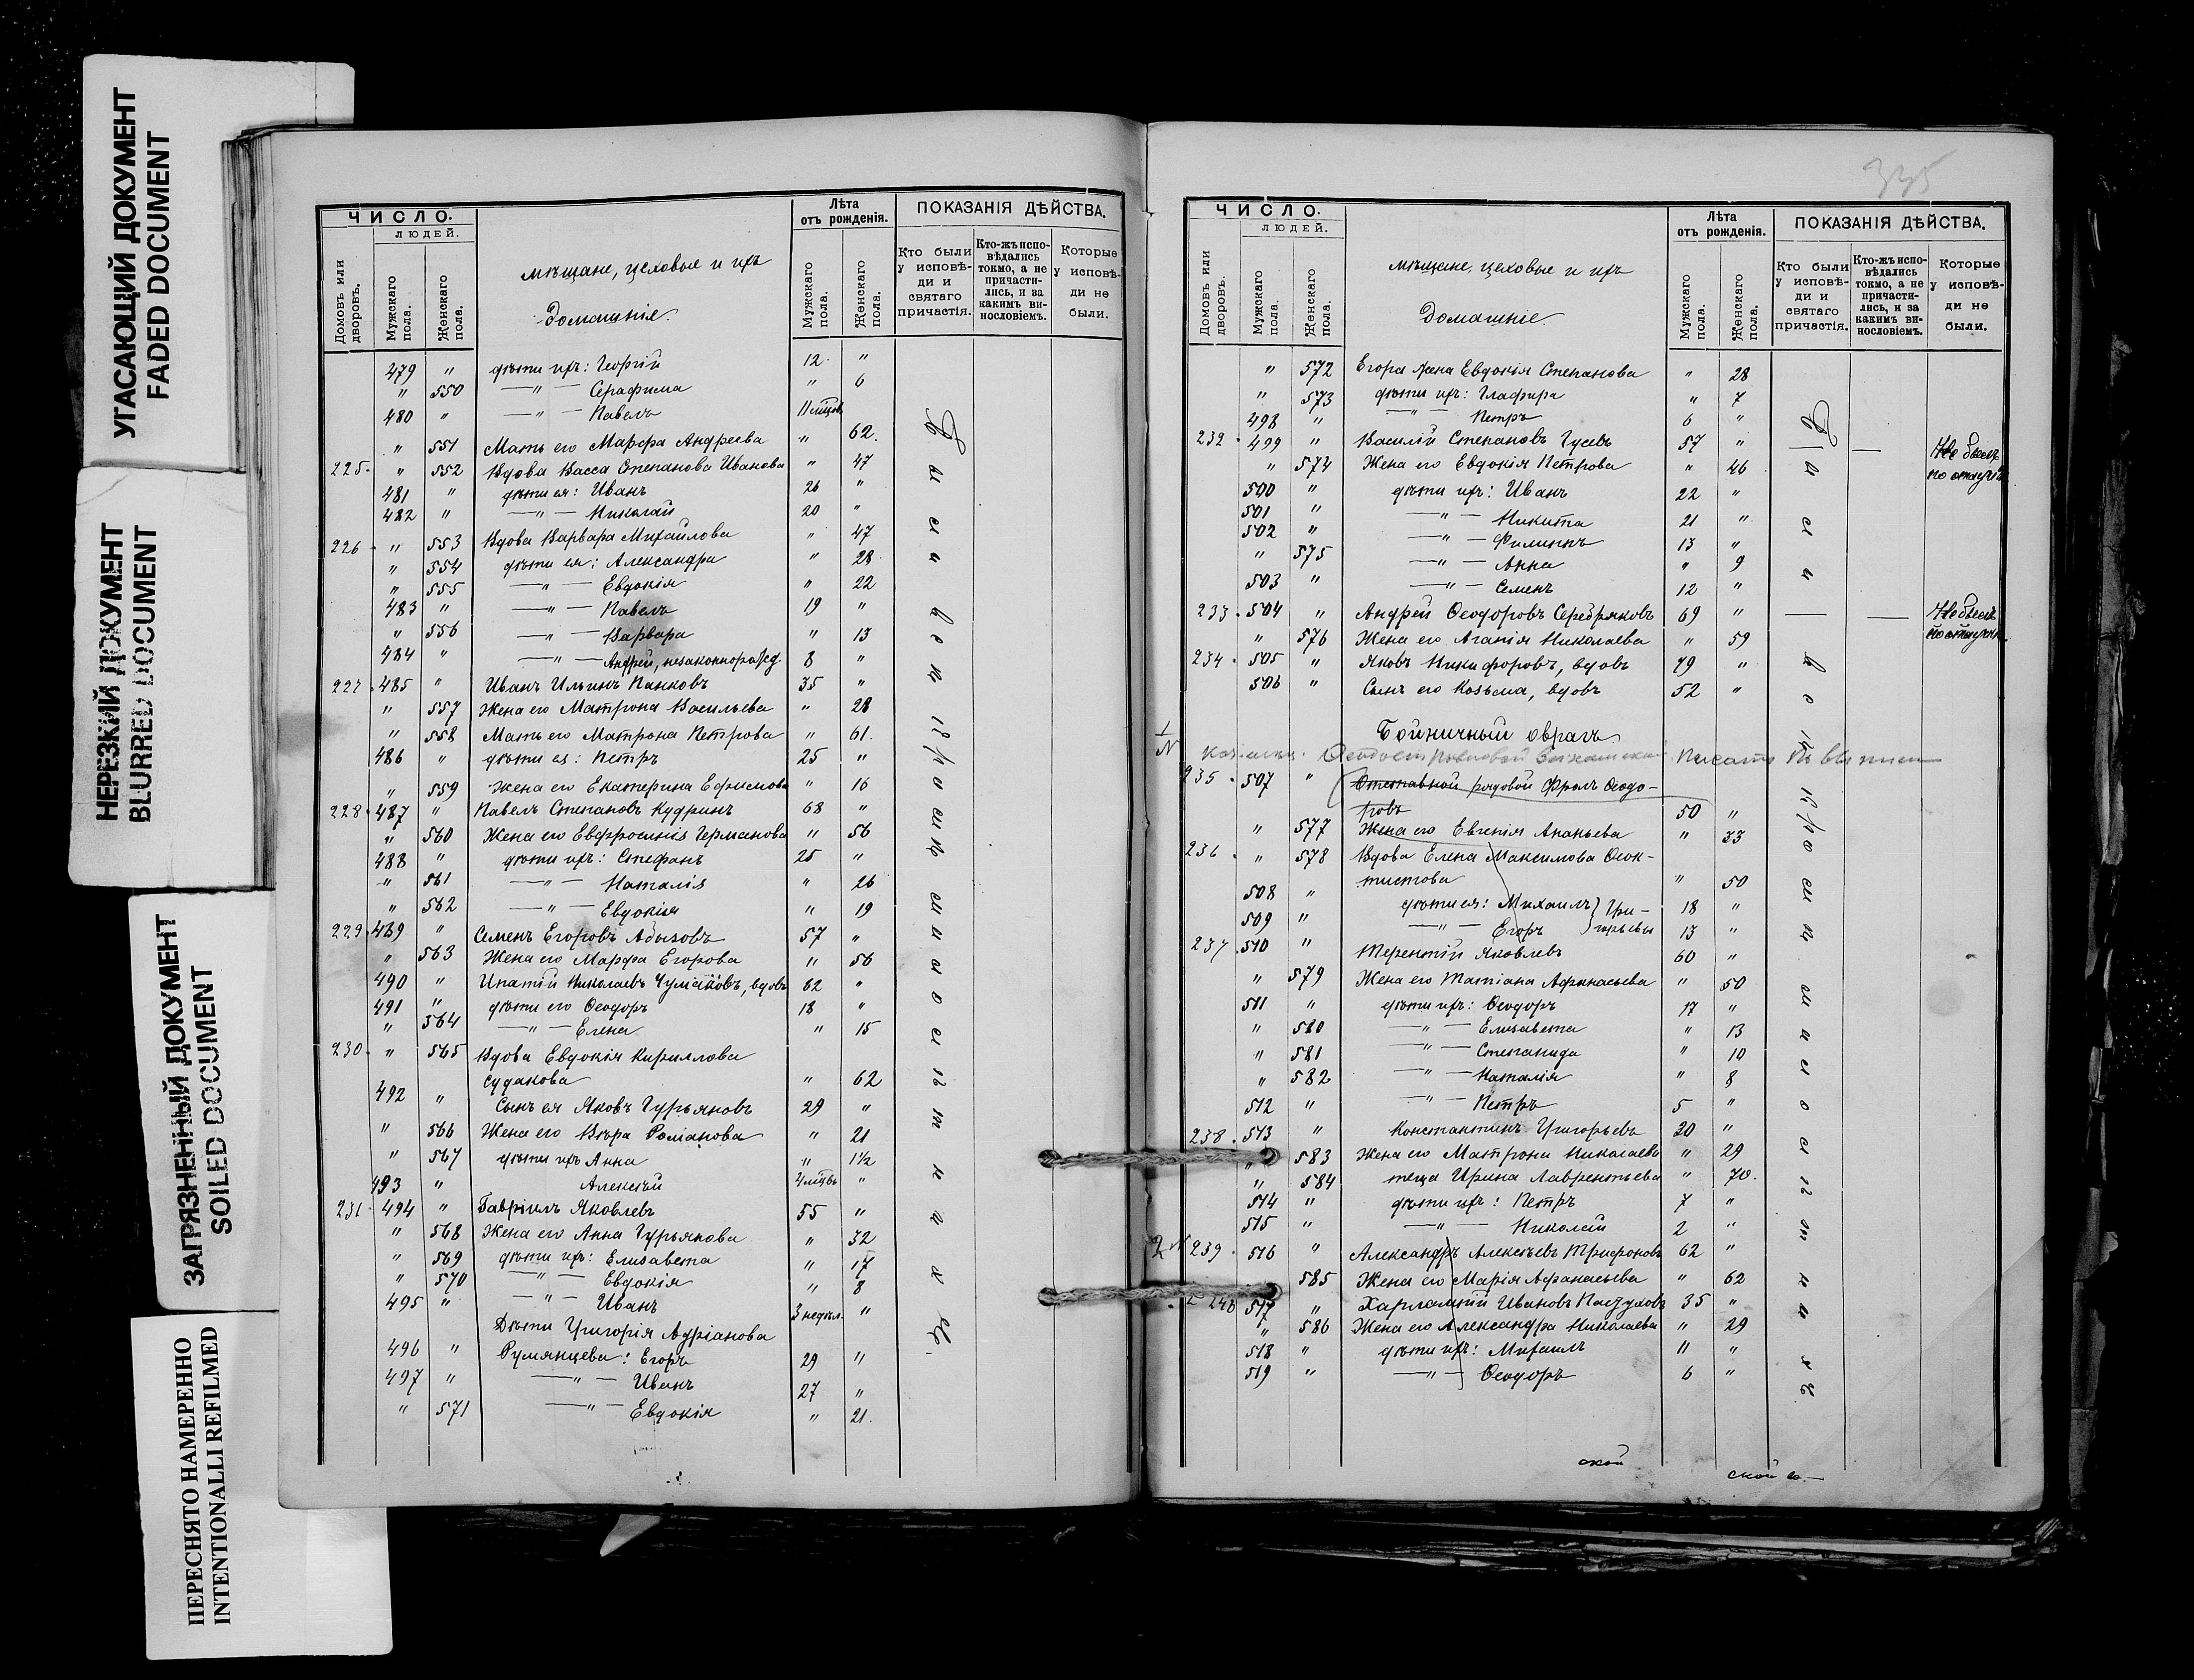 УГАСАЮЩИЙ ДОКУМЕНТ
FADED DOCUMENT
НЕРЕЗКИЙ ДОКУМЕНТ
BLURRED DOCUMENT
ЗАГРЯЗНЕННЫЙ ДОКУМЕНТ
SOILED DOCUMENT
ПЕРЕСНЯТО НАМЕРЕННО
INTENTIONALLI REFILMED
ЧИСЛО.
ЛЮДЕЙ.
Домовъ или дворовъ.
Мужскаго пола.
Женскаго пола.
мѣщане, цеховые и ихъ
домашніе.
Лѣта отъ рожденія.
Мужскаго пола.
Женскаго пола.
ПОКАЗАНІЯ ДѢЙСТВА.
Кто были у исповѣди и святаго причастія.
Кто-жъ исповѣдались токмо, а не причастились, и за какимъ винословіемъ.
Которые у исповѣди не были.
479 " дѣти ихъ: Георгій 12 "
" 550 —"— Серафима " 6
480 " —"— Павелъ 11 мѣсяц. "
" 551 Мать его Марѳа Андреева " 62.
225. " 552 Вдова Васса Степанова Иванова " 47
481 " дѣти ея: Иванъ 26 "
482 " —"— Николай 20 "
226. " 553 Вдова Варвара Михайлова " 47
" 554 дѣти ея: Александра " 28
" 555 —"— Евдокія " 22
483 " —"— Павелъ 19 "
" 556 —"— Варвара " 13
484 " —"— Андрей, незаконнорожд. 8 "
227. 485 " Иванъ Ильинъ Панковъ 35 "
" 557 Жена его Матрона Васильева " 28
" 558 Мать его Матрона Петрова " 61.
486 " дѣти ея: Петръ 25 "
" 559 Жена его Екатерина Ефимова " 16
228. 487 " Павелъ Степановъ Кудринъ 68 "
" 560 Жена его Евфросинія Германова " 56
488 " дѣти ихъ: Стефанъ 25 "
" 561 —"— Наталія " 26
" 562 —"— Евдокія " 19
229. 489 " Семенъ Егоровъ Абызовъ 57 "
" 563 Жена его Марѳа Егорова " 56
490 " Ипатій Николаевъ Чумаковъ, вдовъ 62 "
491 " дѣти его Ѳеодоръ 18 "
" 564 —"— Елена " 15
230. " 565 Вдова Евдокія Кириллова
Судакова " 62
492 " Сынъ ея Яковъ Гурьяновъ 29 "
" 566 Жена его Вѣра Романова " 21
" 567 дѣти ихъ Анна " 1½
493 " Алексѣй 4 мѣсяц. "
231. 494 " Гавріилъ Яковлевъ 55 "
" 568 Жена его Анна Гурьянова " 32
" 569 дѣти ихъ: Елисавета " 17
" 570 —"— Евдокія " 8
495 " —"— Иванъ 3 недѣл. "
Дѣти Григорія Адріанова
496 " Румянцева: Егоръ 29 "
497 " —"— Иванъ 27 "
" 571 —"— Евдокія " 21.
335
ЧИСЛО.
ЛЮДЕЙ.
Домовъ или дворовъ.
Мужскаго пола.
Женскаго пола.
мѣщане, цеховые и ихъ
домашніе.
Лѣта отъ рожденія.
Мужскаго пола.
Женскаго пола.
ПОКАЗАНІЯ ДѢЙСТВА.
Кто были у исповѣди и святаго причастія.
Кто-жъ исповѣдались токмо, а не причастились, и за какимъ винословіемъ.
Которые у исповѣди не были.
" 572 Егора жена Евдокія Степанова " 28
" 573 дѣти ихъ: Глафира " 7
498 " —"— Петръ 6 "
232. 499 " Василій Степановъ Гусевъ 57 " — Не былъ
" 574 Жена его Евдокія Петрова " 46
500 " дѣти ихъ: Иванъ 22 "
501 " —"— Никита 21 "
502 " —"— Филиппъ 13 "
" 575 —"— Анна " 9
503 " —"— Семенъ 12 "
233. 504 " Андрей Ѳеодоровъ Серебряковъ 69 " — — Не былъ
" 576 Жена его Агапія Николаева " 59
234. 505 " Яковъ Никифоровъ, вдовъ 79 "
506 " Сынъ его Козьма, вдовъ 52 "
Бойничный оврагъ.
235. 507 " Отставной рядовой Фролъ Ѳеодо-
ровъ 50 "
" 577 Жена его Евгенія Ананьева " 33
236. " 578 Вдова Елена Максимова Ѳеок-
тистова " 50
508 " дѣти ея: Михаилъ } Гри- 18 "
509 " —"— Егоръ } горьевы 13 "
237. 510 " Терентій Яковлевъ 60 "
" 579 Жена его Татіана Афанасьева " 50
511 " дѣти ихъ: Ѳеодоръ 17 "
" 580 —"— Елисавета " 13
" 581 —"— Степанида " 10
" 582 —"— Наталія " 8
512 " —"— Петръ 5 "
238. 513 " Константинъ Григорьевъ 30 "
" 583 Жена его Матрона Николаева " 29
" 584 теща Ирина Лаврентьева " 70.
514 " дѣти ихъ: Петръ 7 "
515 " —"— Николай 2 "
239. 516 " Александръ Алексѣевъ Трифоновъ 62 "
585 Жена его Марія Афанасьева " 62
240 517 " Харлампій Ивановъ Пастуховъ 35 "
" 586 Жена его Александра Николаева " 29
518 " дѣти ихъ: Михаилъ 11 "
519 " —"— Ѳеодоръ 6 "
ской